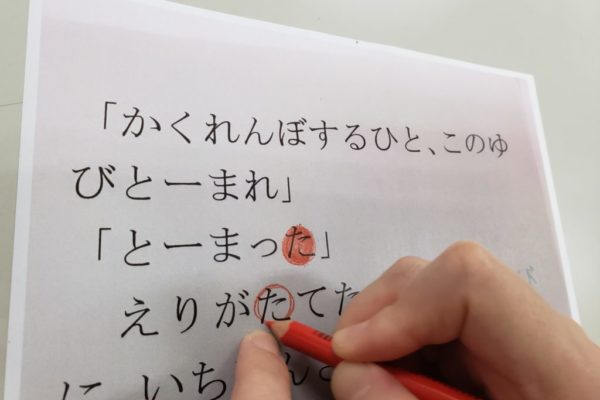 「かくれんぼするひと、このゆ
びとーまれ」
「とーまった」
えりがたてた
に いち